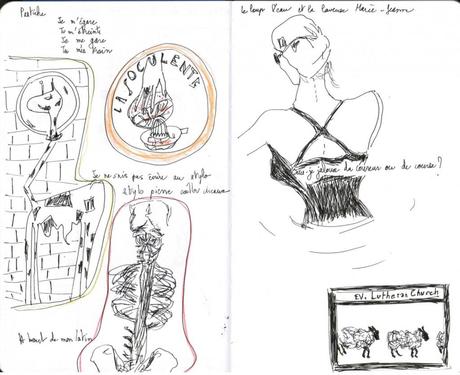 Pastiche
Je m'égare
Tu m'étreints
Je me gare
Tu m'es train
LA SOCULENTE
Je ne sais pas écrire au stylo
stylo pierre ciseaux
A bout de mon latin
Le loup Veau et la laveuse Marie-Jeanne
Suis-je jaloux du coureur ou de course ?
EV. Lutheran Church